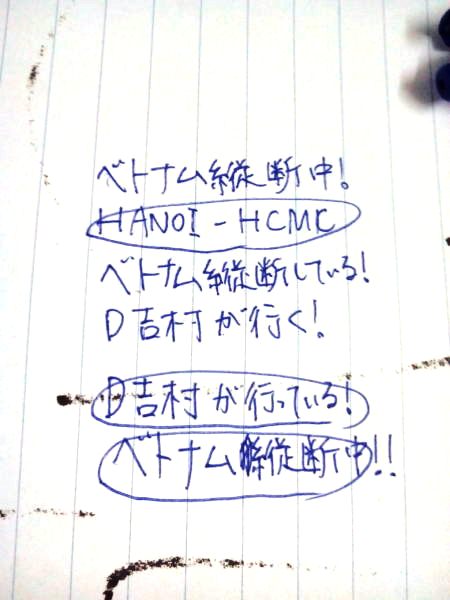 ベトナム縦断中!
HANOI - HCMC
ベトナム縦断している!
D吉村が行く!
D吉村が行っている!
ベトナム縦断中!!